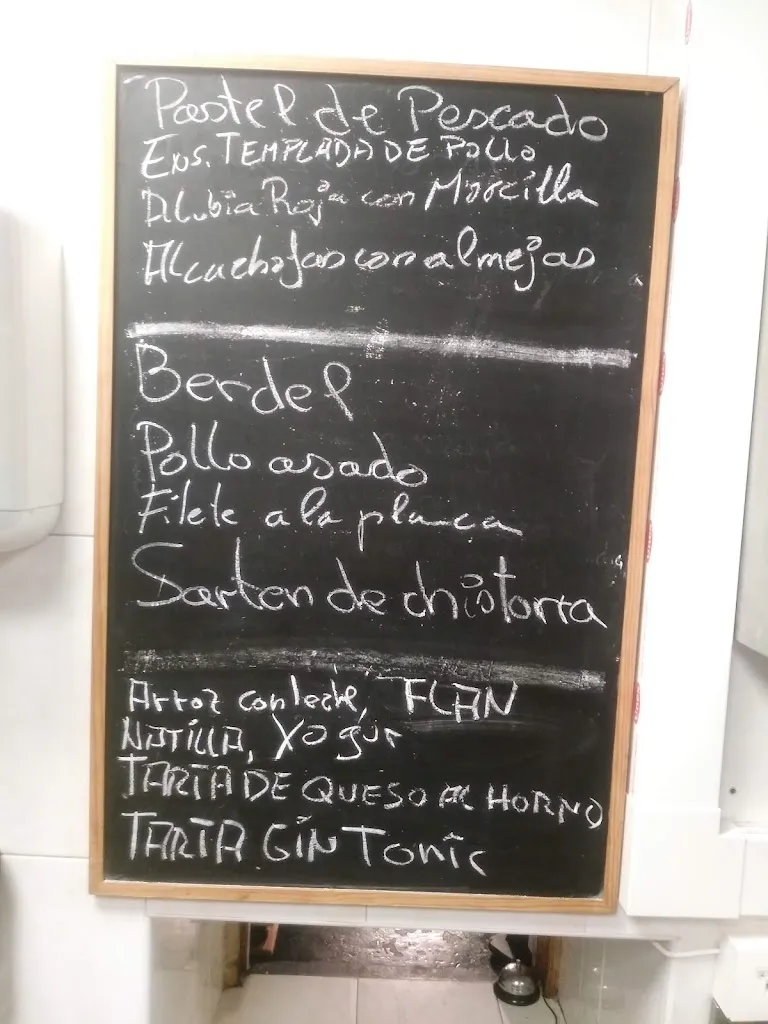 Pastel de Pescado
Ens. TEMPLADA DE POLLO
Alubia Roja con Morcilla
Alcachofas con almejas
Berdel
Pollo asado
Filete a la planca
Sarten de chistorra
Arroz con leche, FLAN
NATILLA, Yogur
TARTA DE QUESO AL HORNO
TARTA GIN TONIC